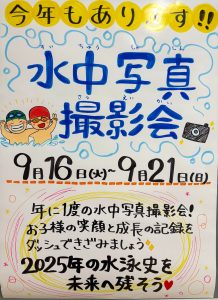 今年もあります!!
水中写真
撮影会
9月16日(火)~9月21日(日)
年に1度の水中写真撮影会!
お子様の笑顔と成長の記録を
ダッシュできざみましょう
2025年の水泳史を
未来へ残そう